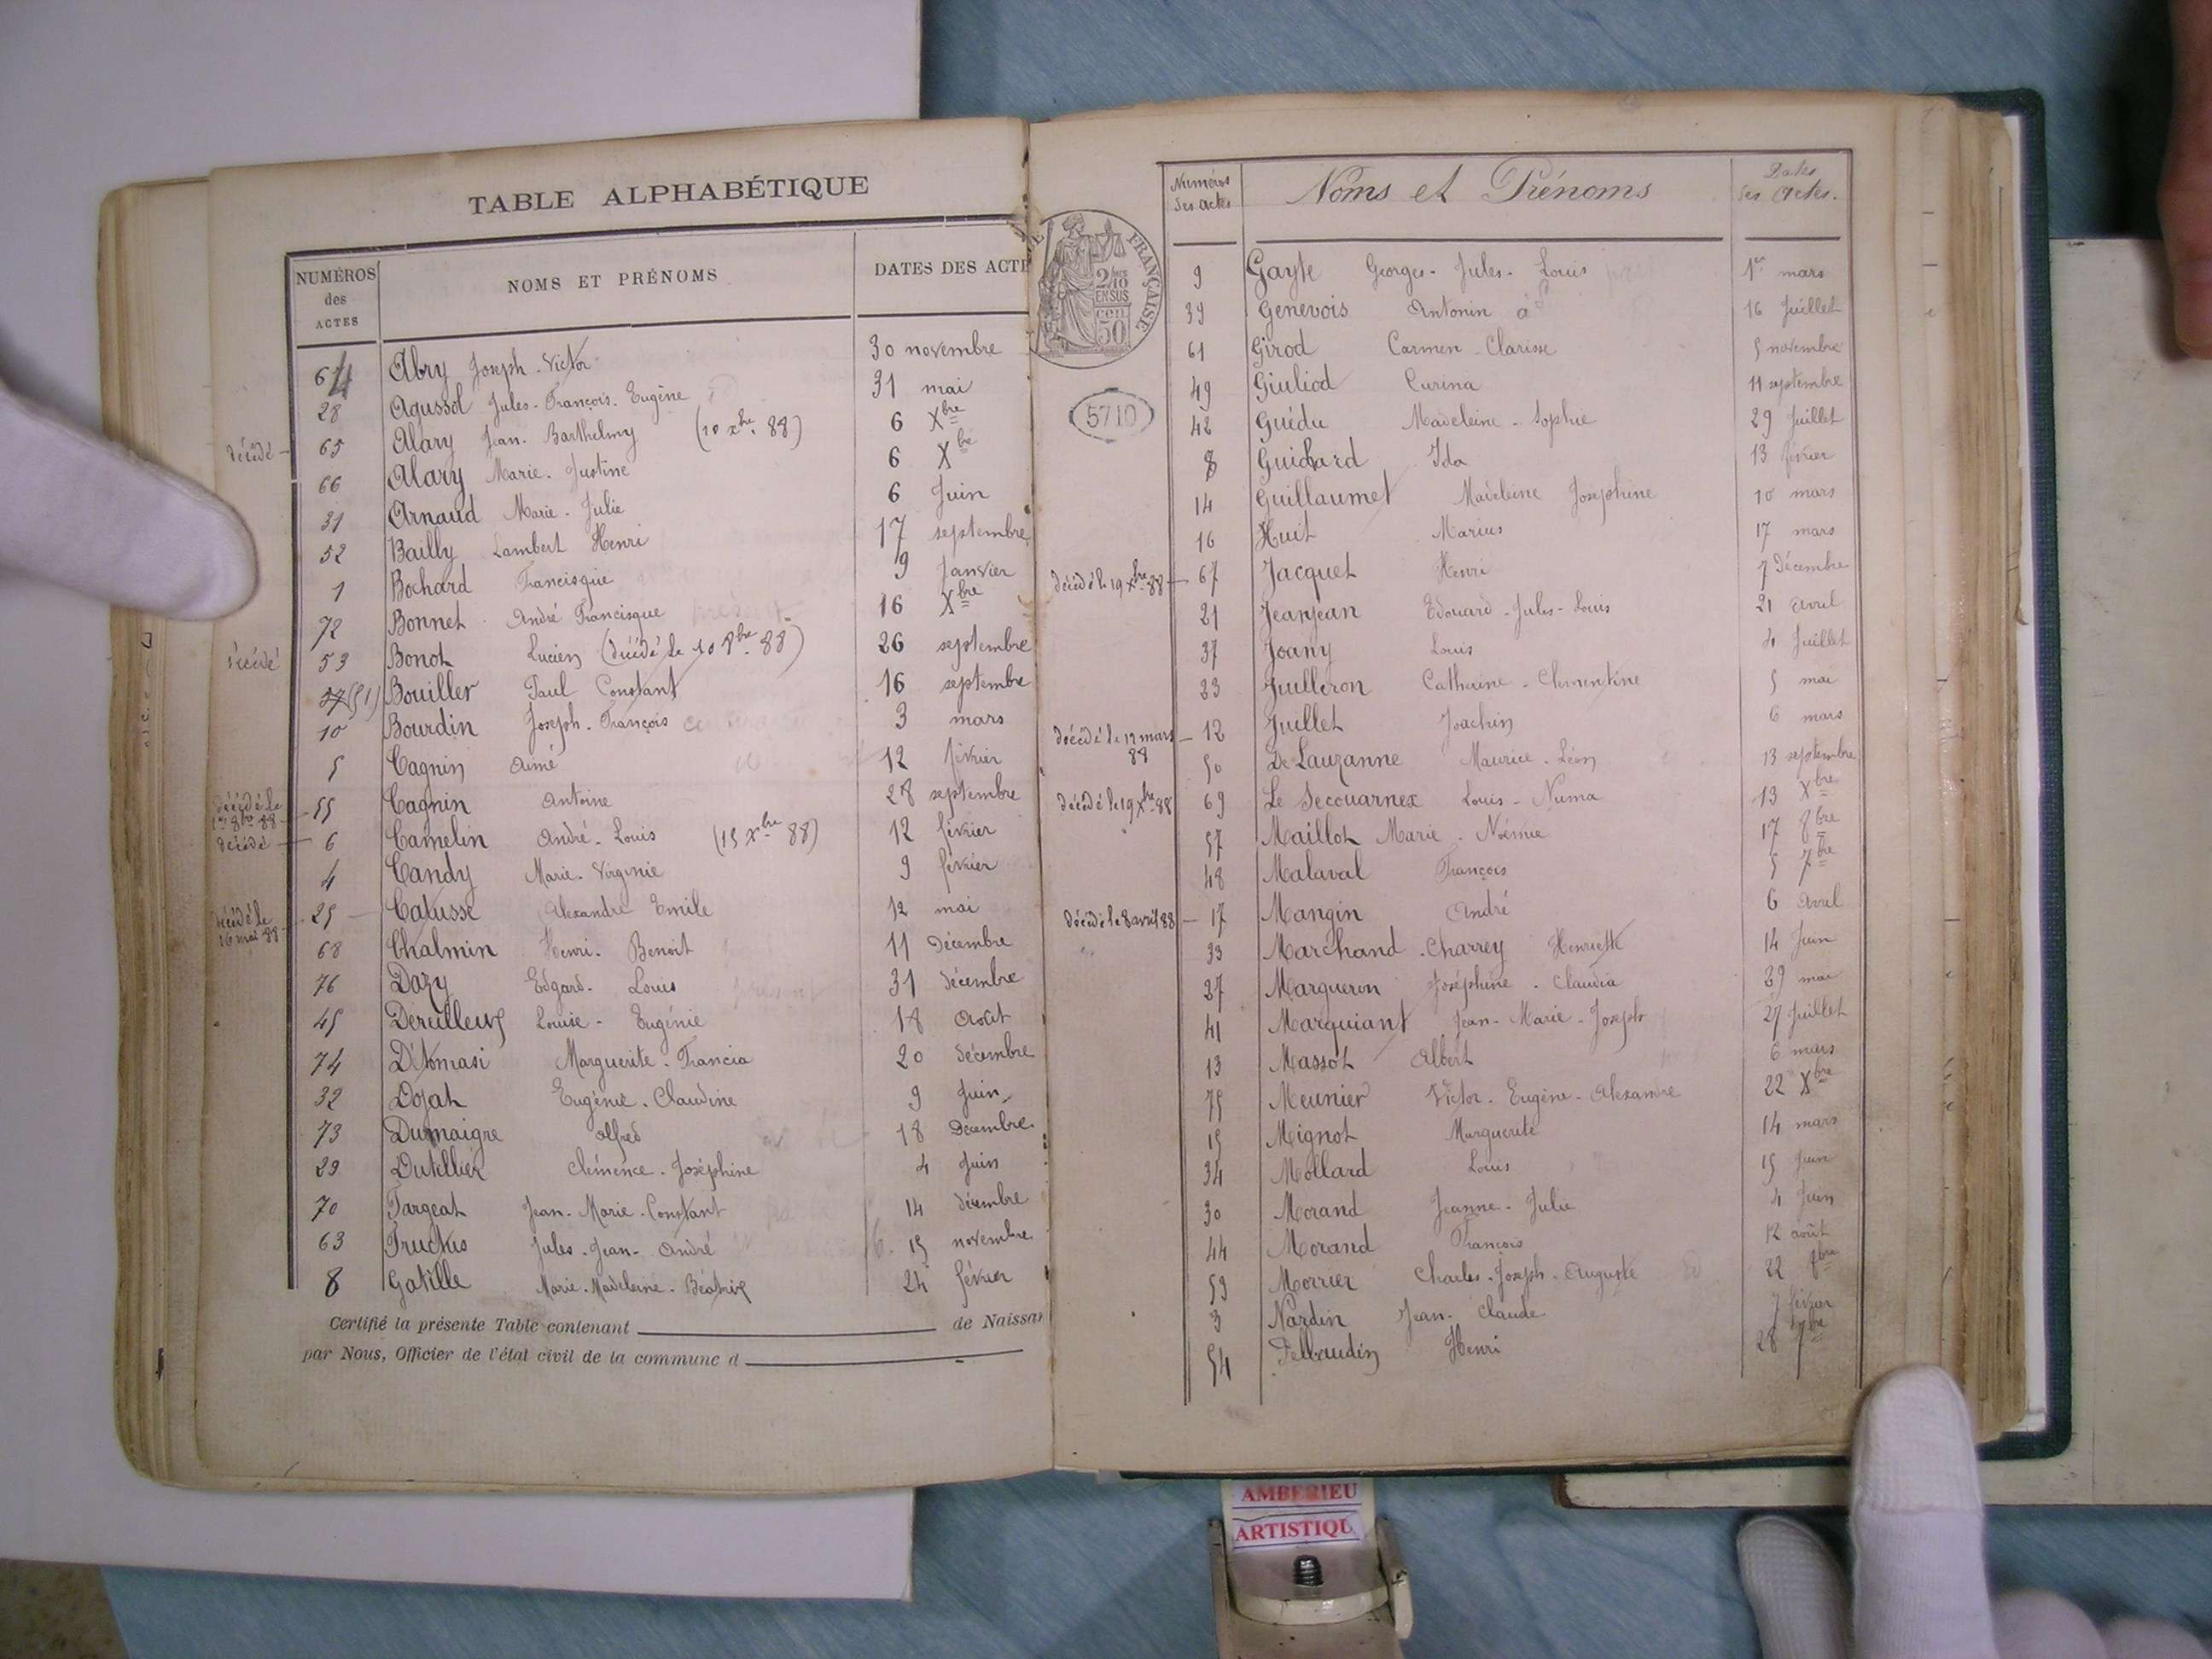 TABLE ALPHABÉTIQUE
NUMÉROS des ACTES NOMS ET PRÉNOMS DATES DES ACTE
64 Abry Joseph-Victor 30 novembre
28 Agussol Jules-François-Eugène 31 mai
décédé - 65 Alary Jean-Barthelmy (10 xbre 88) 6 Xbre
66 Alary Marie-Justine 6 Xbre
31 Arnaud Marie-Julie 6 Juin
52 Bailly Lambert Henri 17 septembre
1 Bochard Francisque 9 Janvier
72 Bonnet André Francisque 16 Xbre
décédé 53 Bonot Lucien (décédé le 10 8bre 88) 26 septembre
(51) Bouiller Paul Constant 16 septembre
10 Bourdin Joseph-François 3 mars
5 Cagnin Aimé 12 février
décédé le 8bre 88 - 55 Cagnin Antoine 28 septembre
décédé - 6 Camelin André-Louis (15 Xbre 88) 12 février
4 Candy Marie-Virginie 9 février
décédé le 16 mai 88 - 25 Calusse Alexandre Emile 12 mai
68 Chalmin Henri-Benoit 11 Décembre
76 Dazy Edgard-Louis 31 décembre
45 Louise-Eugénie 18 Août
74 Détomasi Marguerite-Francia 20 décembre
32 Dojat Eugénie-Claudine 9 Juin
73 Dumaigre Alfred 18 Décembre
29 Dutillier Clémence-Joséphine 4 Juin
70 Fargeat Jean-Marie-Constant 14 décembre
63 Fructus Jules-Jean-André 15 novembre
8 Gatille Marie-Madeleine-Béatrix 24 février
Certifié la présente Table contenant de Naissan
par Nous, Officier de l'état civil de la commune d
FRANÇAISE
2/10 EN SUS
50 cen
5710
Numéros des actes Noms et Prénoms Dates des Actes.
9 Gayte Georges-Jules-Louis 1er mars
39 Genevois Antonin 16 Juillet
61 Girod Carmen-Clarisse 5 novembre
49 Giuliod Curina 11 septembre
42 Guédu Madeleine-Sophie 29 Juillet
8 Guichard Ida 13 février
14 Guillaumet Madeleine Joséphine 10 mars
16 Huit Marius 17 mars
décédé le 19 Xbre 88 - 67 Jacquet Henri 7 Décembre
21 Jeanjean Edouard-Jules-Louis 21 avril
37 Joany Louis 4 Juillet
23 Juilleron Catherine-Clementine 5 mai
décédé le 12 mars 88 - 12 Juillet Joachin 6 mars
50 De Lauzanne Maurice-Léon 13 septembre
décédé le 19 Xbre 88 69 Le Secouarnex Louis-Numa 13 Xbre
57 Maillot Marie-Noémie 17 8bre
48 Malaval François 5 7bre
décédé le 8 avril 88 - 17 Mangin André 6 Avril
33 Marchand-Charrey Henriette 14 Juin
27 Margueron Joséphine-Claudia 29 mai
41 Marguiant Jean-Marie-Joseph 27 Juillet
13 Massot Albert 6 mars
75 Meunier Victor-Eugène-Alexandre 22 Xbre
15 Mignot Marguerite 14 mars
34 Mollard Louis 15 Juin
30 Morand Jeanne-Julie 4 Juin
44 Morand François 12 août
59 Morrier Charles-Joseph-Auguste 22 8bre
3 Nardin Jean-Claude 7 février
54 Pellaudin Henri 28 7bre
AMBERIEU
ARTISTIQU